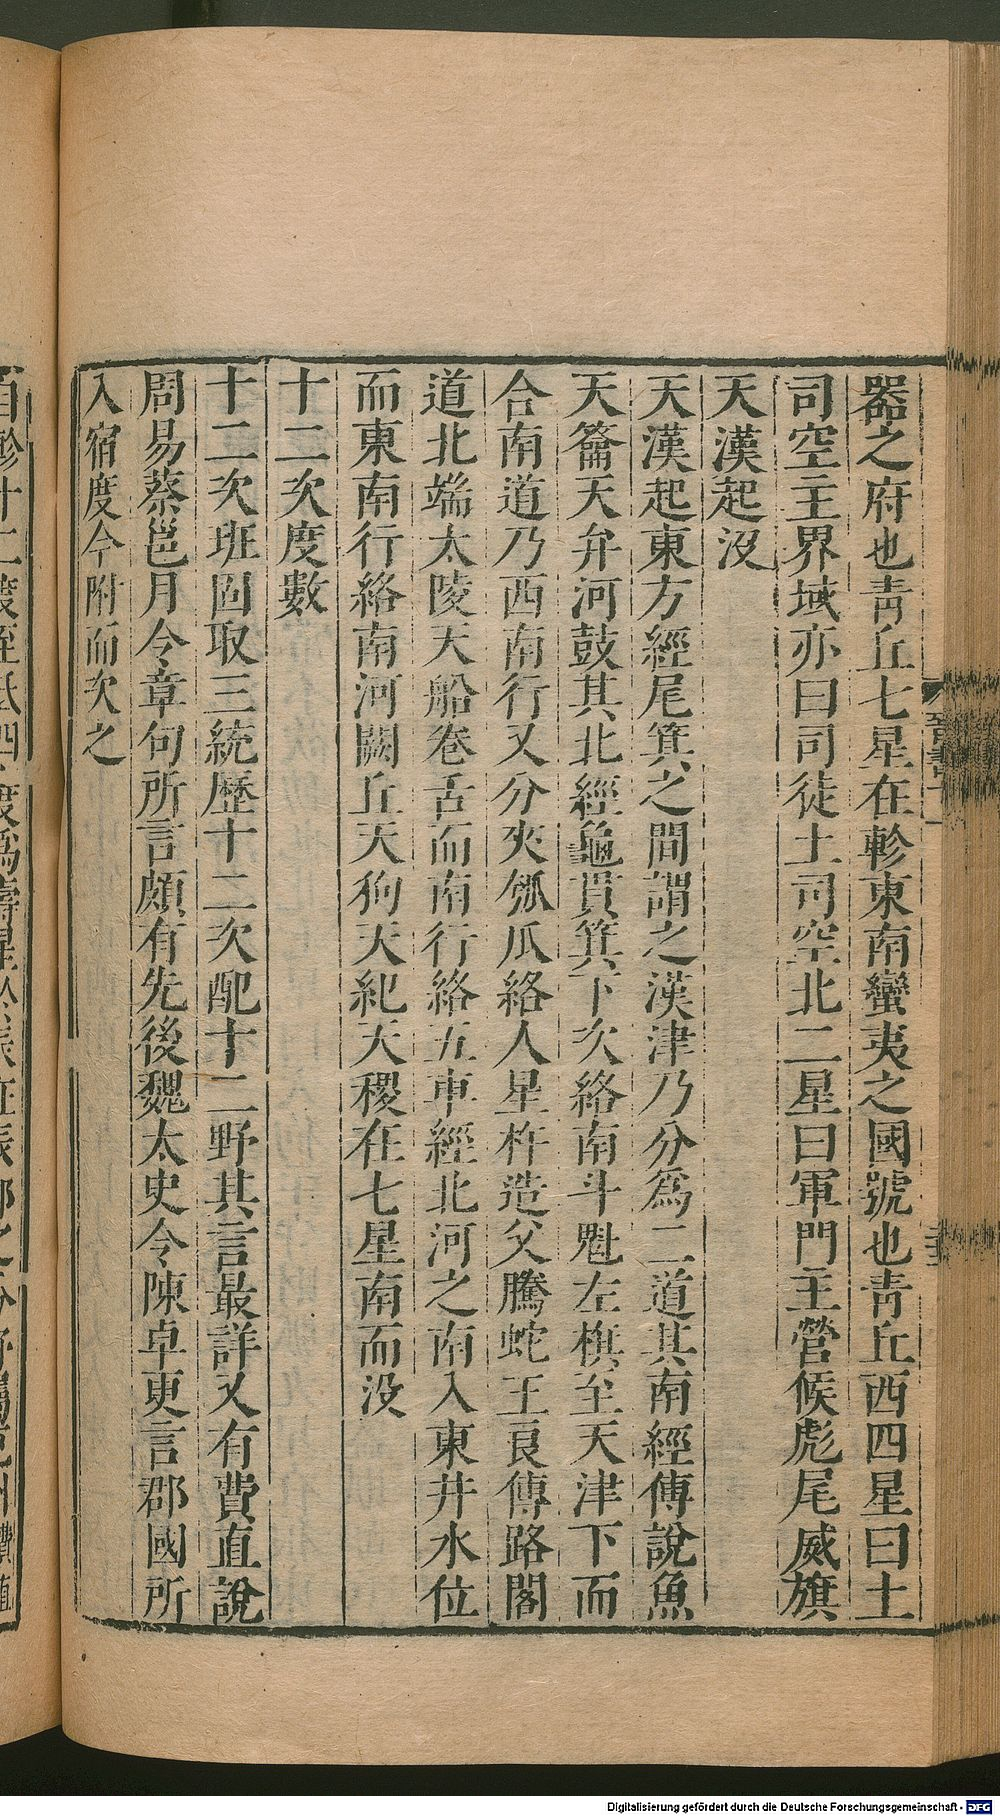 器之府也靑丘七星在軫東南蠻夷之國號也靑丘西四星曰土
司空主界域亦曰司徒土司空北二星曰軍門主營候彪尾威旗
天漢起没
天漢起東方經尾箕之間謂之漢津乃分爲二道其南經傳說魚
天籥天弁河鼓其北經龜貫箕下次絡南斗魁左旗至天津下而
合南道乃西南行又分夾瓠瓜絡人星杵造父騰蛇王良傅路閣
道北端太陵天船卷舌而南行絡五車經北河之南入東井水位
而東南行絡南河闕丘天狗天紀天稷在七星南而没
十二次度數
十二次班固取三統歷十二次配十二野其言最詳又有費直說
周易蔡邕月令章句所言頗有先後魏太史令陳卓更言郡國所
入宿度今附而次之
Digitalisierung gefördert durch die Deutsche Forschungsgemeinschaft - DFG